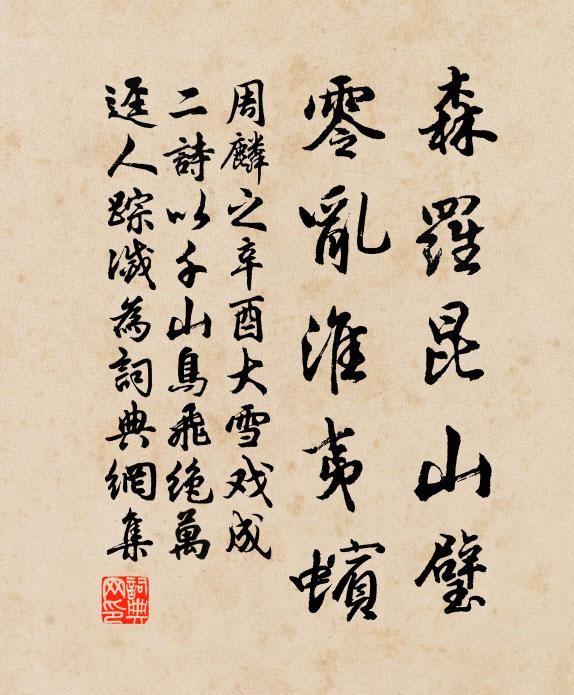 森羅昆山璧
零亂淮夷蠙
周麟之辛酉大雪戏成
二詩以千山鳥飛絶萬
逕人踪滅為詞典網集
詞典网印